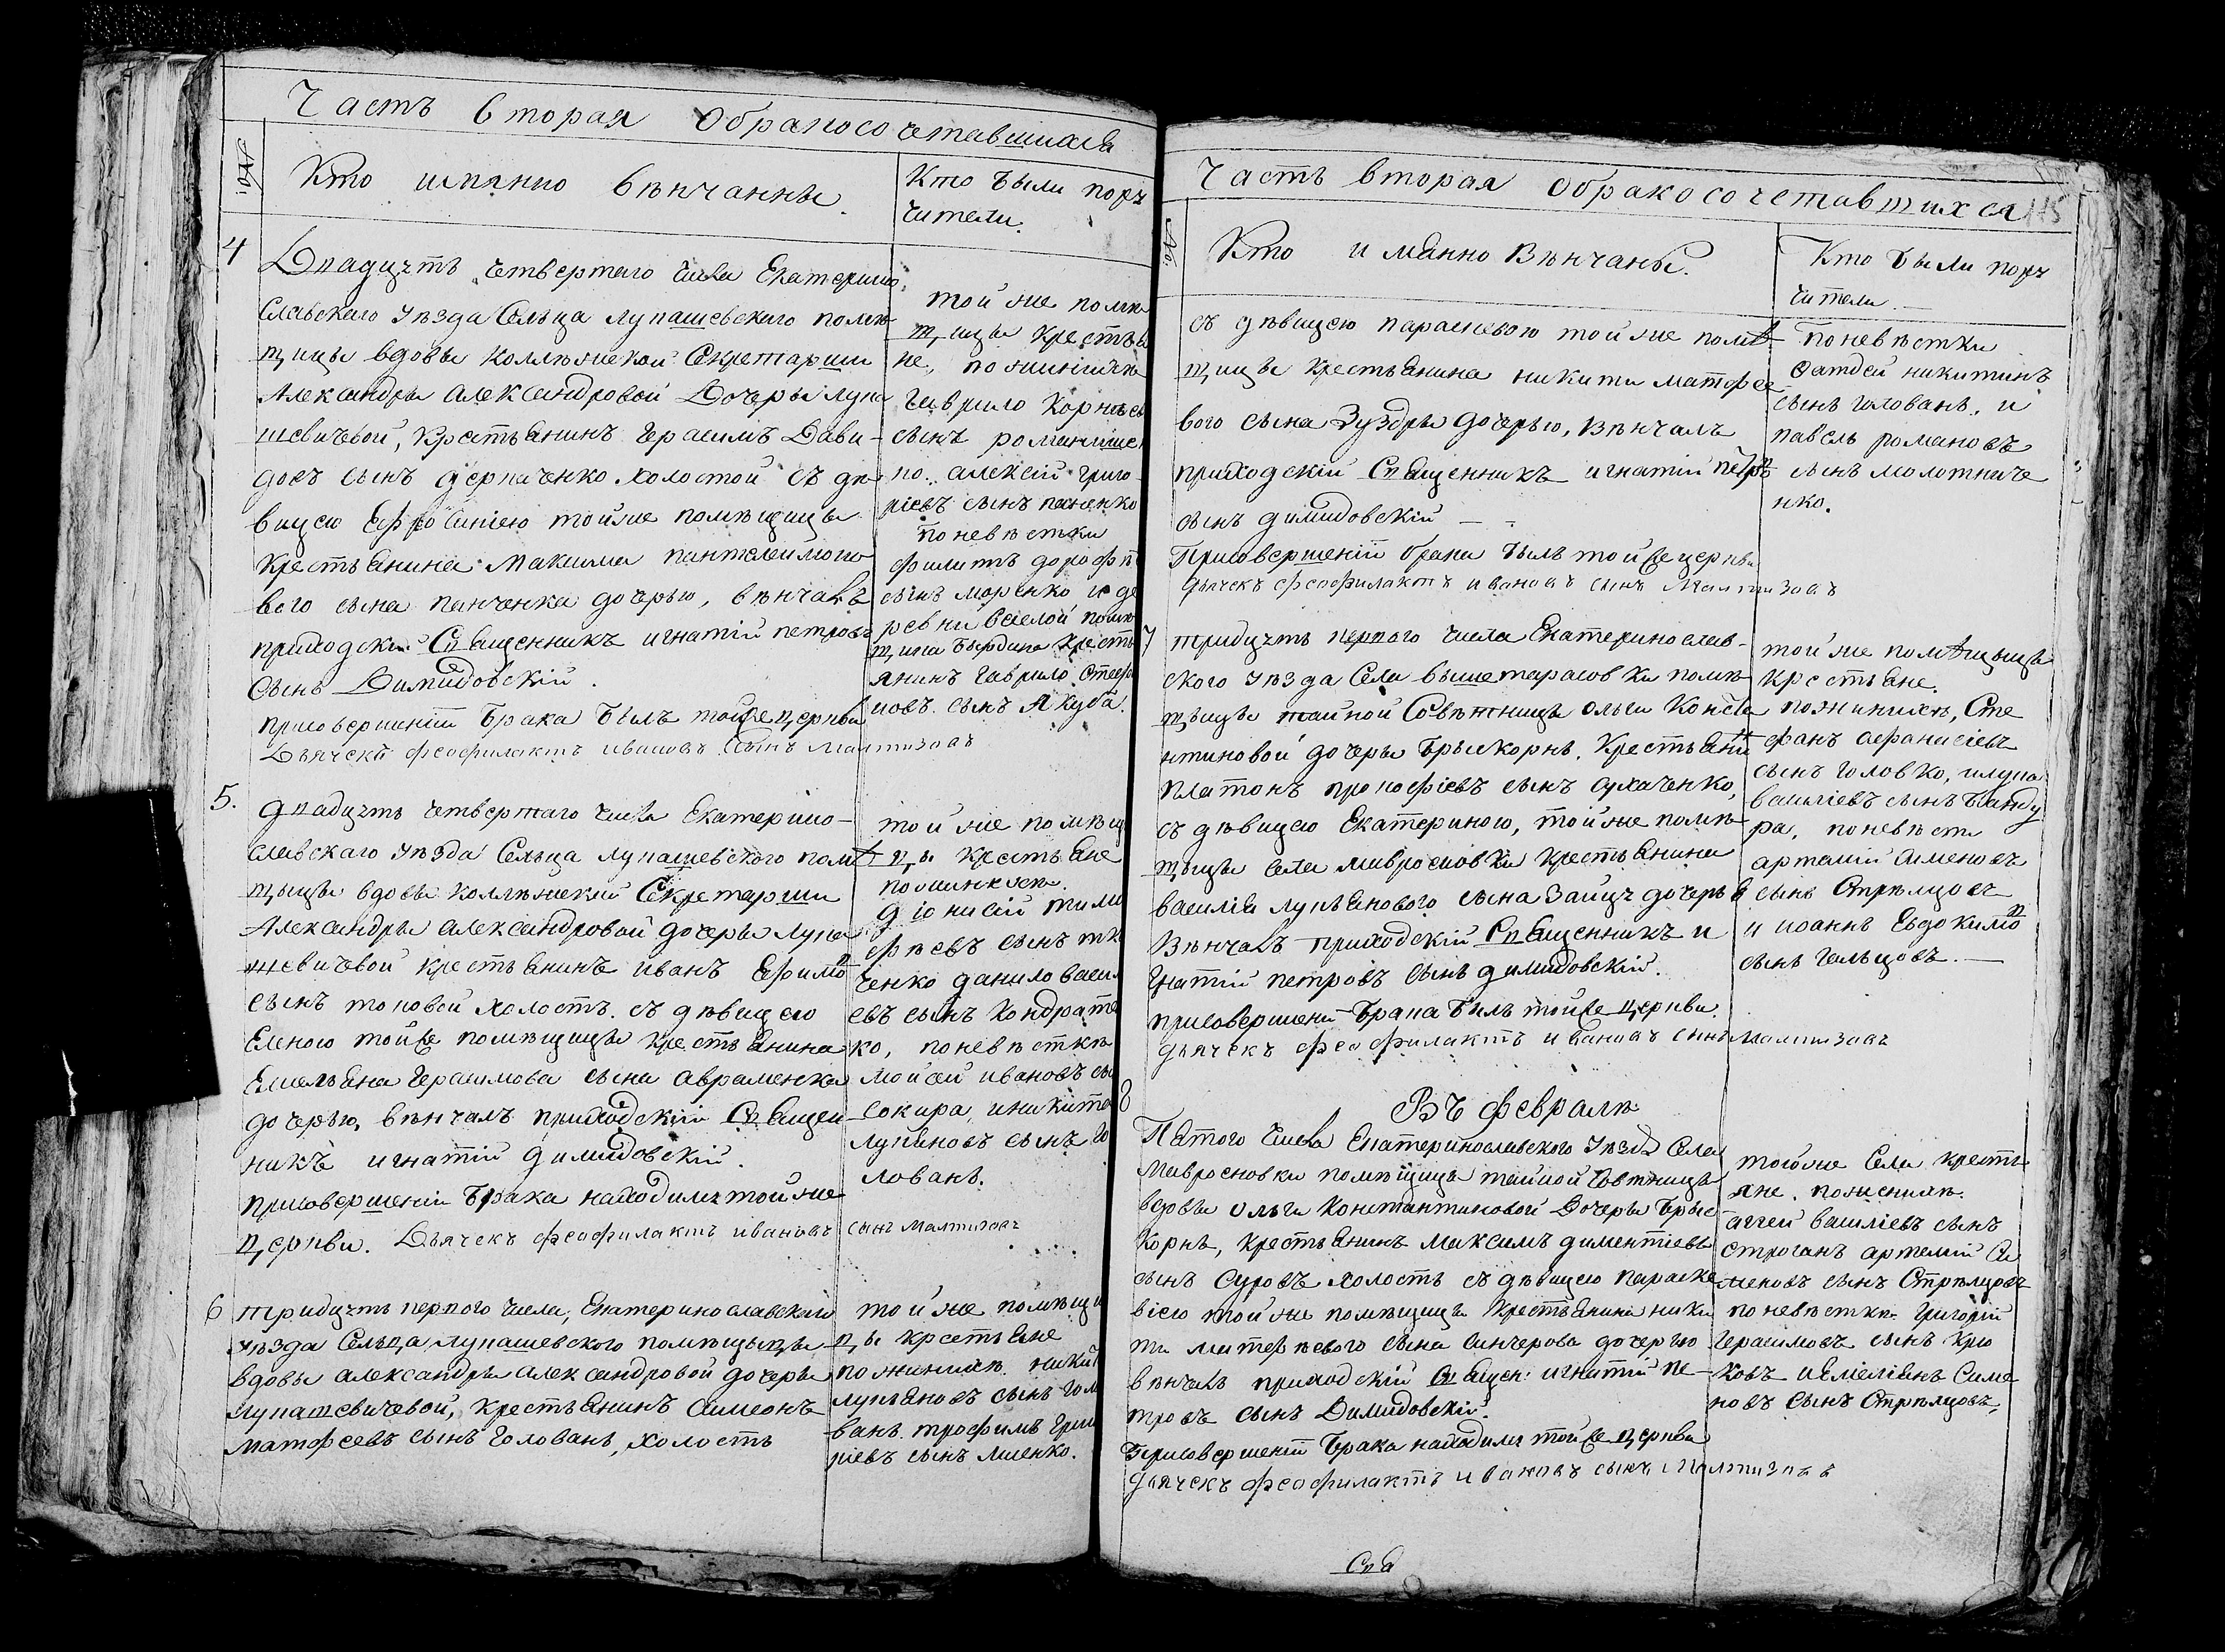 Часть вторая обракосочетавшихся
№:
Кто имянно венчанны.
Кто были пору
чители.
4
Двадцать четвертаго числа Екатерино-
славскаго уѣзда Сельца лупашевского помѣ-
щицы вдовы коллѣжской Секретарши
Александры александровой дочеры лупа
шевичевой, крестьянинъ герасимъ Дави-
довъ сынъ дерпаченко. холостой съ дѣ-
вицею Ефросиніею тойже помѣщицы
Крестьянина Максима пантелеимоно
вого сына панченка дочерью, вѣнчалъ
приходскій Священникъ игнатій петровъ
Сынъ Димидовскій.
присовершеніи брака былъ тойже церкви
Дьячекъ феофилактъ ивановъ сынъ
той же помѣ
щицы крестья
не, по женихѣ
гаврило Корнѣевъ
сынъ
по. алексій григо-
ріевъ сынъ паненко
поневѣстки
филипъ дорофѣ
сынъ моренко и де
ревни помѣ
щика кресть
янинъ гаврило Стефа
новъ сынъ Якуба.
5.
двадцать четвертаго числа Екатерино-
славскаго уѣзда Сельца лупашевского помѣ
щицы вдовы коллѣжской Секретарши
Александры александровой дочеры лупа
шевичевой крестьянинъ иванъ Ефимо
сынъ холостъ. съ дѣвицею
Еленою тойже помѣщицы крестьянина
Емельяна герасимова сына авраменка
дочерью, вѣнчалъ приходскій Священ
никъ игнатій димидовскій.
присовершеніи брака находился тойже
церкви. Дьячекъ феофилактъ ивановъ сынъ
той же помѣщи
цы крестьяне
поженихѣ.
діонисій тимо
фѣевъ сынъ тка
ченко данило васил
евъ сынъ Кондрате
ко, поневѣсткѣ
мойсей ивановъ сы
Сокира, иникита
лупановъ сынъ го
лованъ.
6
тридцать первого числа, Екатеринославскаго
уѣзда Сельца лупашевского помѣщыцы
вдовы александры александровой дочеры
лупашевичевой, крестьянинъ симеонъ
матфеевъ сынъ голованъ, холостъ
той же помѣщи
цы крестьяне
по женихѣ никита
лупьановъ сынъ голо
ванъ. трофимъ григо
ріевъ сынъ лисенко.
Часть вторая обракосочетавшихся 115
№:
Кто имянно Вѣнчаны.
Кто были пору
чители
съ дѣвицею параскевою той же помѣ
щицы крестьянина никиты матфее
вого сына дочерью, вѣнчалъ
приходскій Священникъ игнатій петровъ
сынъ димидовскій
Присовершеніи брака былъ тойже церкви
дьячекъ феофилактъ ивановъ сынъ
Поневѣстки
фатдей никитинъ
сынъ голованъ, и
павелъ романовъ
сынъ молотниче
нко.
7
тридцать первого числа Екатеринослав-
ского уѣзда Села вышетарасовки помѣ
щыцы тайной Совѣтницы ольги Конста
нтиновой дочеры Брыскорнъ. крестьяни
платонъ прокофіевъ сынъ сухаченко,
съ дѣвицею Екатериною, той же помѣ-
щыцы села мавросновки крестьянина
василія лукьянового сына Заицъ дочерью
Вѣнчалъ приходскій Священникъ и
гнатій петровъ сынъ димидовскій.
присовершеніи Брака былъ тойже церкви
дьячекъ феофилактъ ивановъ сынъ
той же помѣщыцы
крестьяне.
поженихѣ, Сте
фанъ афанасіевъ
сынъ головко, илука
василіевъ сынъ банду
ра, поневѣсти
артемій сименовъ
сынъ Стрѣлцовъ
и иоаннъ Евдокимо
сынъ гальцовъ.
8
Въ февралѣ
Пятого числа Екатеринославского уѣзда Села
мавросновки помѣщицы тайной совѣтницы
вдовы ольги константиновой Дочеры Брыс
корнъ, крестьянинъ максимъ диментіевъ
сынъ суровъ холостъ съ дѣвицею параске
вією той же помѣщицы крестьянина ники
ты матефѣевого сына дочерью
вѣнчалъ приходскій Священ: игнатій пе-
тровъ сынъ Димидовскій.
Присовершеніи брака находился тойже церкви
дьячекъ феофилактъ ивановъ сынъ
тойже Села кресть
яне. поженихѣ.
аггей василіевъ сынъ
строганъ артемій си
меновъ сынъ Стрѣлцовъ
поневѣсткѣ григорій
герасимовъ сынъ крю
ковъ иемеліянъ Симе
новъ сынъ Стрѣлцовъ.